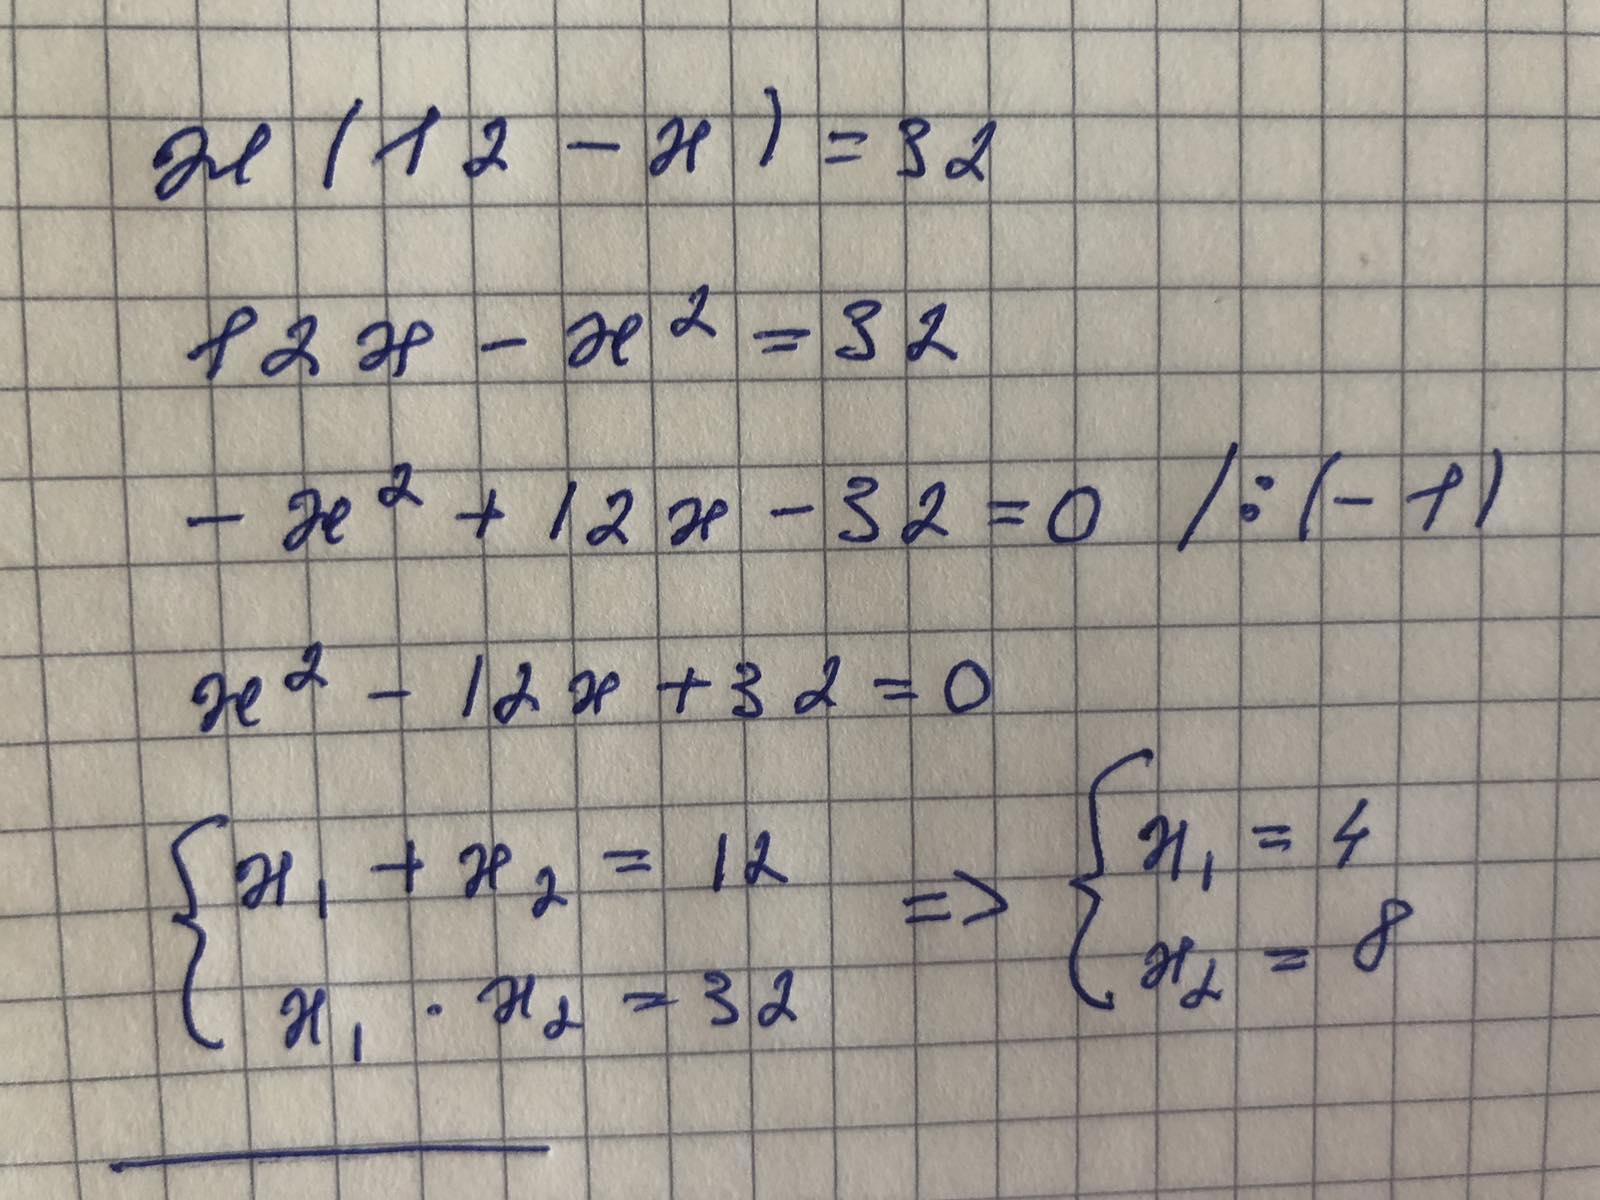 x(12 - x) = 32
12x - x² = 32
- x² + 12x - 32 = 0 / : (- 1)
x² - 12x + 32 = 0
{ x₁ + x₂ = 12 => { x₁ = 4
x₁ · x₂ = 32 x₂ = 8